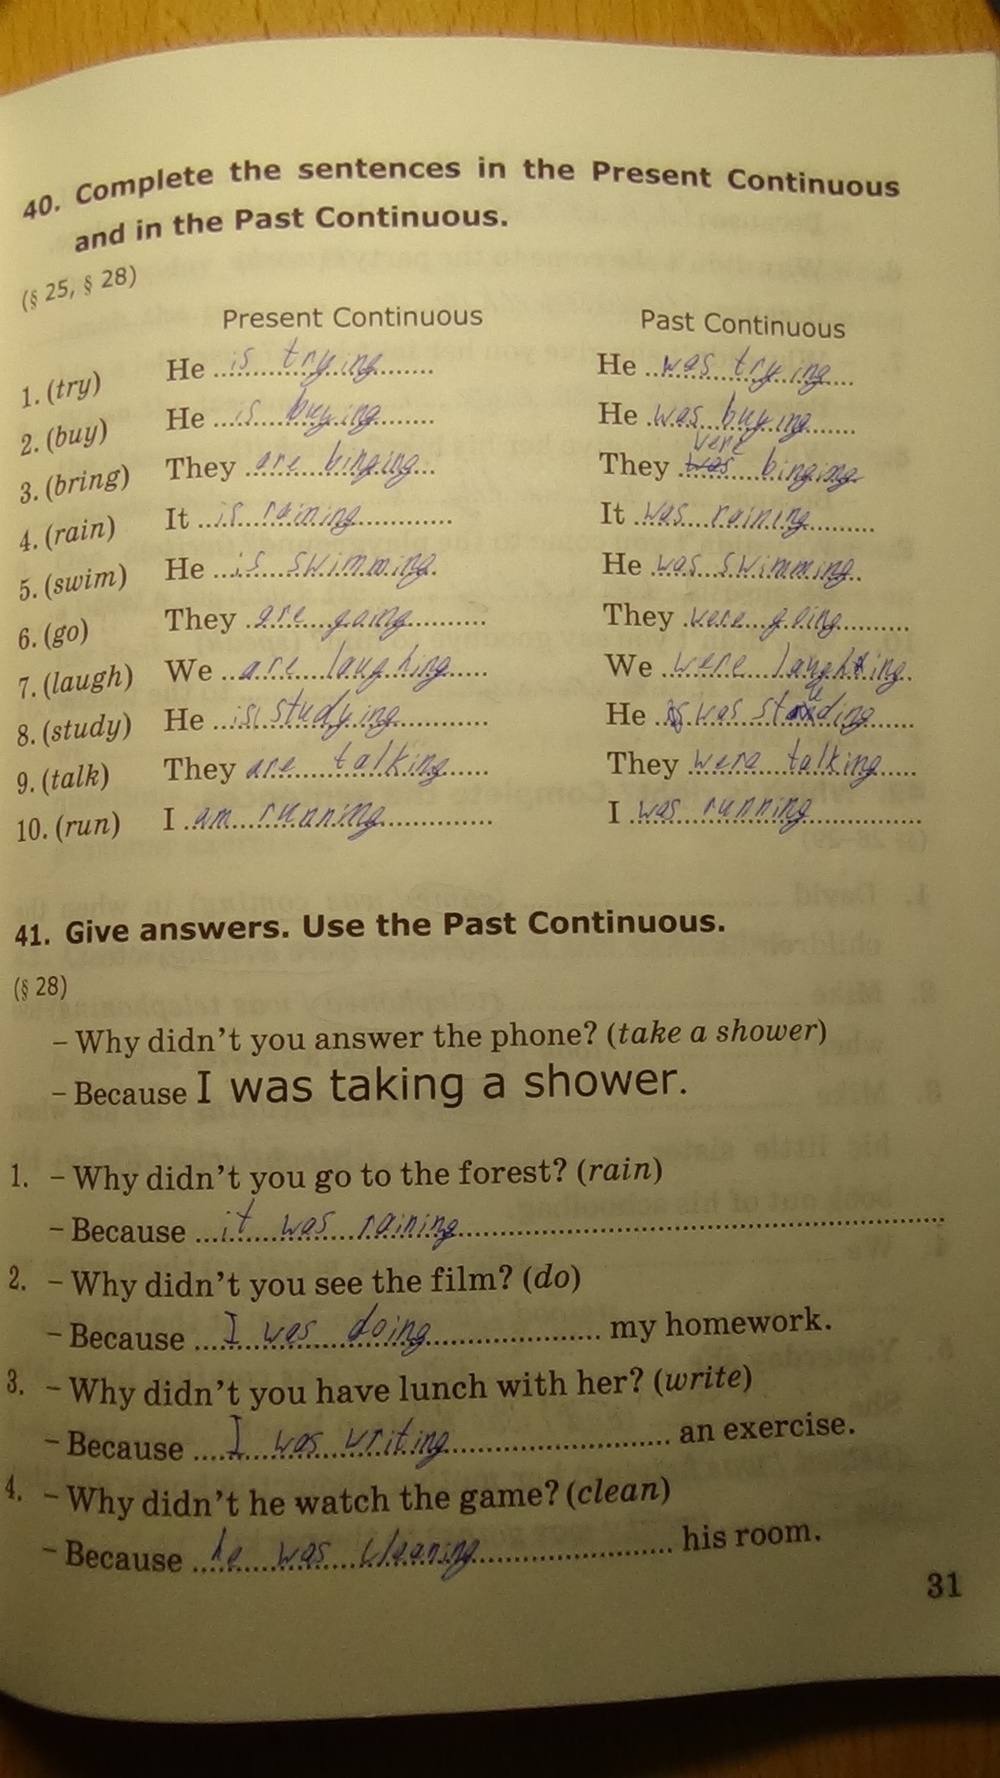 40. Complete the sentences in the Present Continuous
and in the Past Continuous.
(§ 25, § 28)
Present Continuous Past Continuous
1. (try) He is trying He was trying
2. (buy) He is buying He was buying
3. (bring) They are binging They was were binging
4. (rain) It is raining It was raining
5. (swim) He is swimming He was swimming
6. (go) They are going They were going
7. (laugh) We are laughing We were laughing
8. (study) He is studying He was studing
9. (talk) They are talking They were talking
10. (run) I am running I was running
41. Give answers. Use the Past Continuous.
(§ 28)
– Why didn't you answer the phone? (take a shower)
– Because I was taking a shower.
1. – Why didn't you go to the forest? (rain)
– Because it was raining
2. – Why didn't you see the film? (do)
– Because I was doing my homework.
3. – Why didn't you have lunch with her? (write)
– Because I was writing an exercise.
4. – Why didn't he watch the game? (clean)
– Because he was cleaning his room.
31